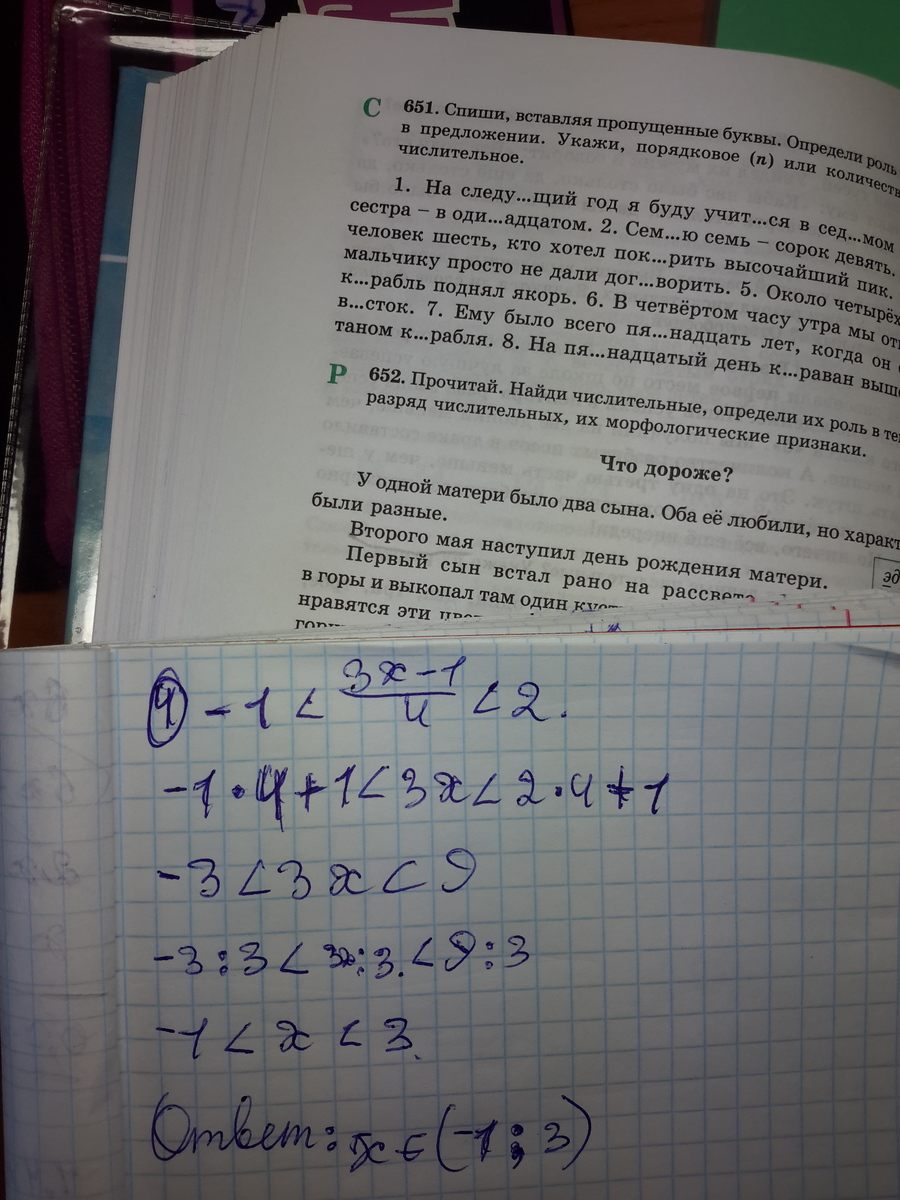 С 651. Спиши, вставляя пропущенные буквы. Определи роль
в предложении. Укажи, порядковое (п) или количеств
числительное.
1. На следу...щий год я буду учит...ся в сед...мом
сестра – в оди...адцатом. 2. Сем...ю семь – сорок девять.
человек шесть, кто хотел пок...рить высочайший пик.
мальчику просто не дали дог...ворить. 5. Около четырёх
к...рабль поднял якорь. 6. В четвёртом часу утра мы отп
в...сток. 7. Ему было всего пя...надцать лет, когда он
таном к...рабля. 8. На пя...надцатый день к...раван выше
Р 652. Прочитай. Найди числительные, определи их роль в те
разряд числительных, их морфологические признаки.
Что дороже?
У одной матери было два сына. Оба её любили, но характ
были разные.
Второго мая наступил день рождения матери.
Первый сын встал рано на рассвете
эд
в горы и выкопал там один куст
нравятся эти цве
4 -1 < (3x-1)/4 < 2.
-1·4+1<3x<2·4+1
-3<3x<9
-3:3<3x:3<9:3
-1<x<3.
Ответ: x∈(-1;3)